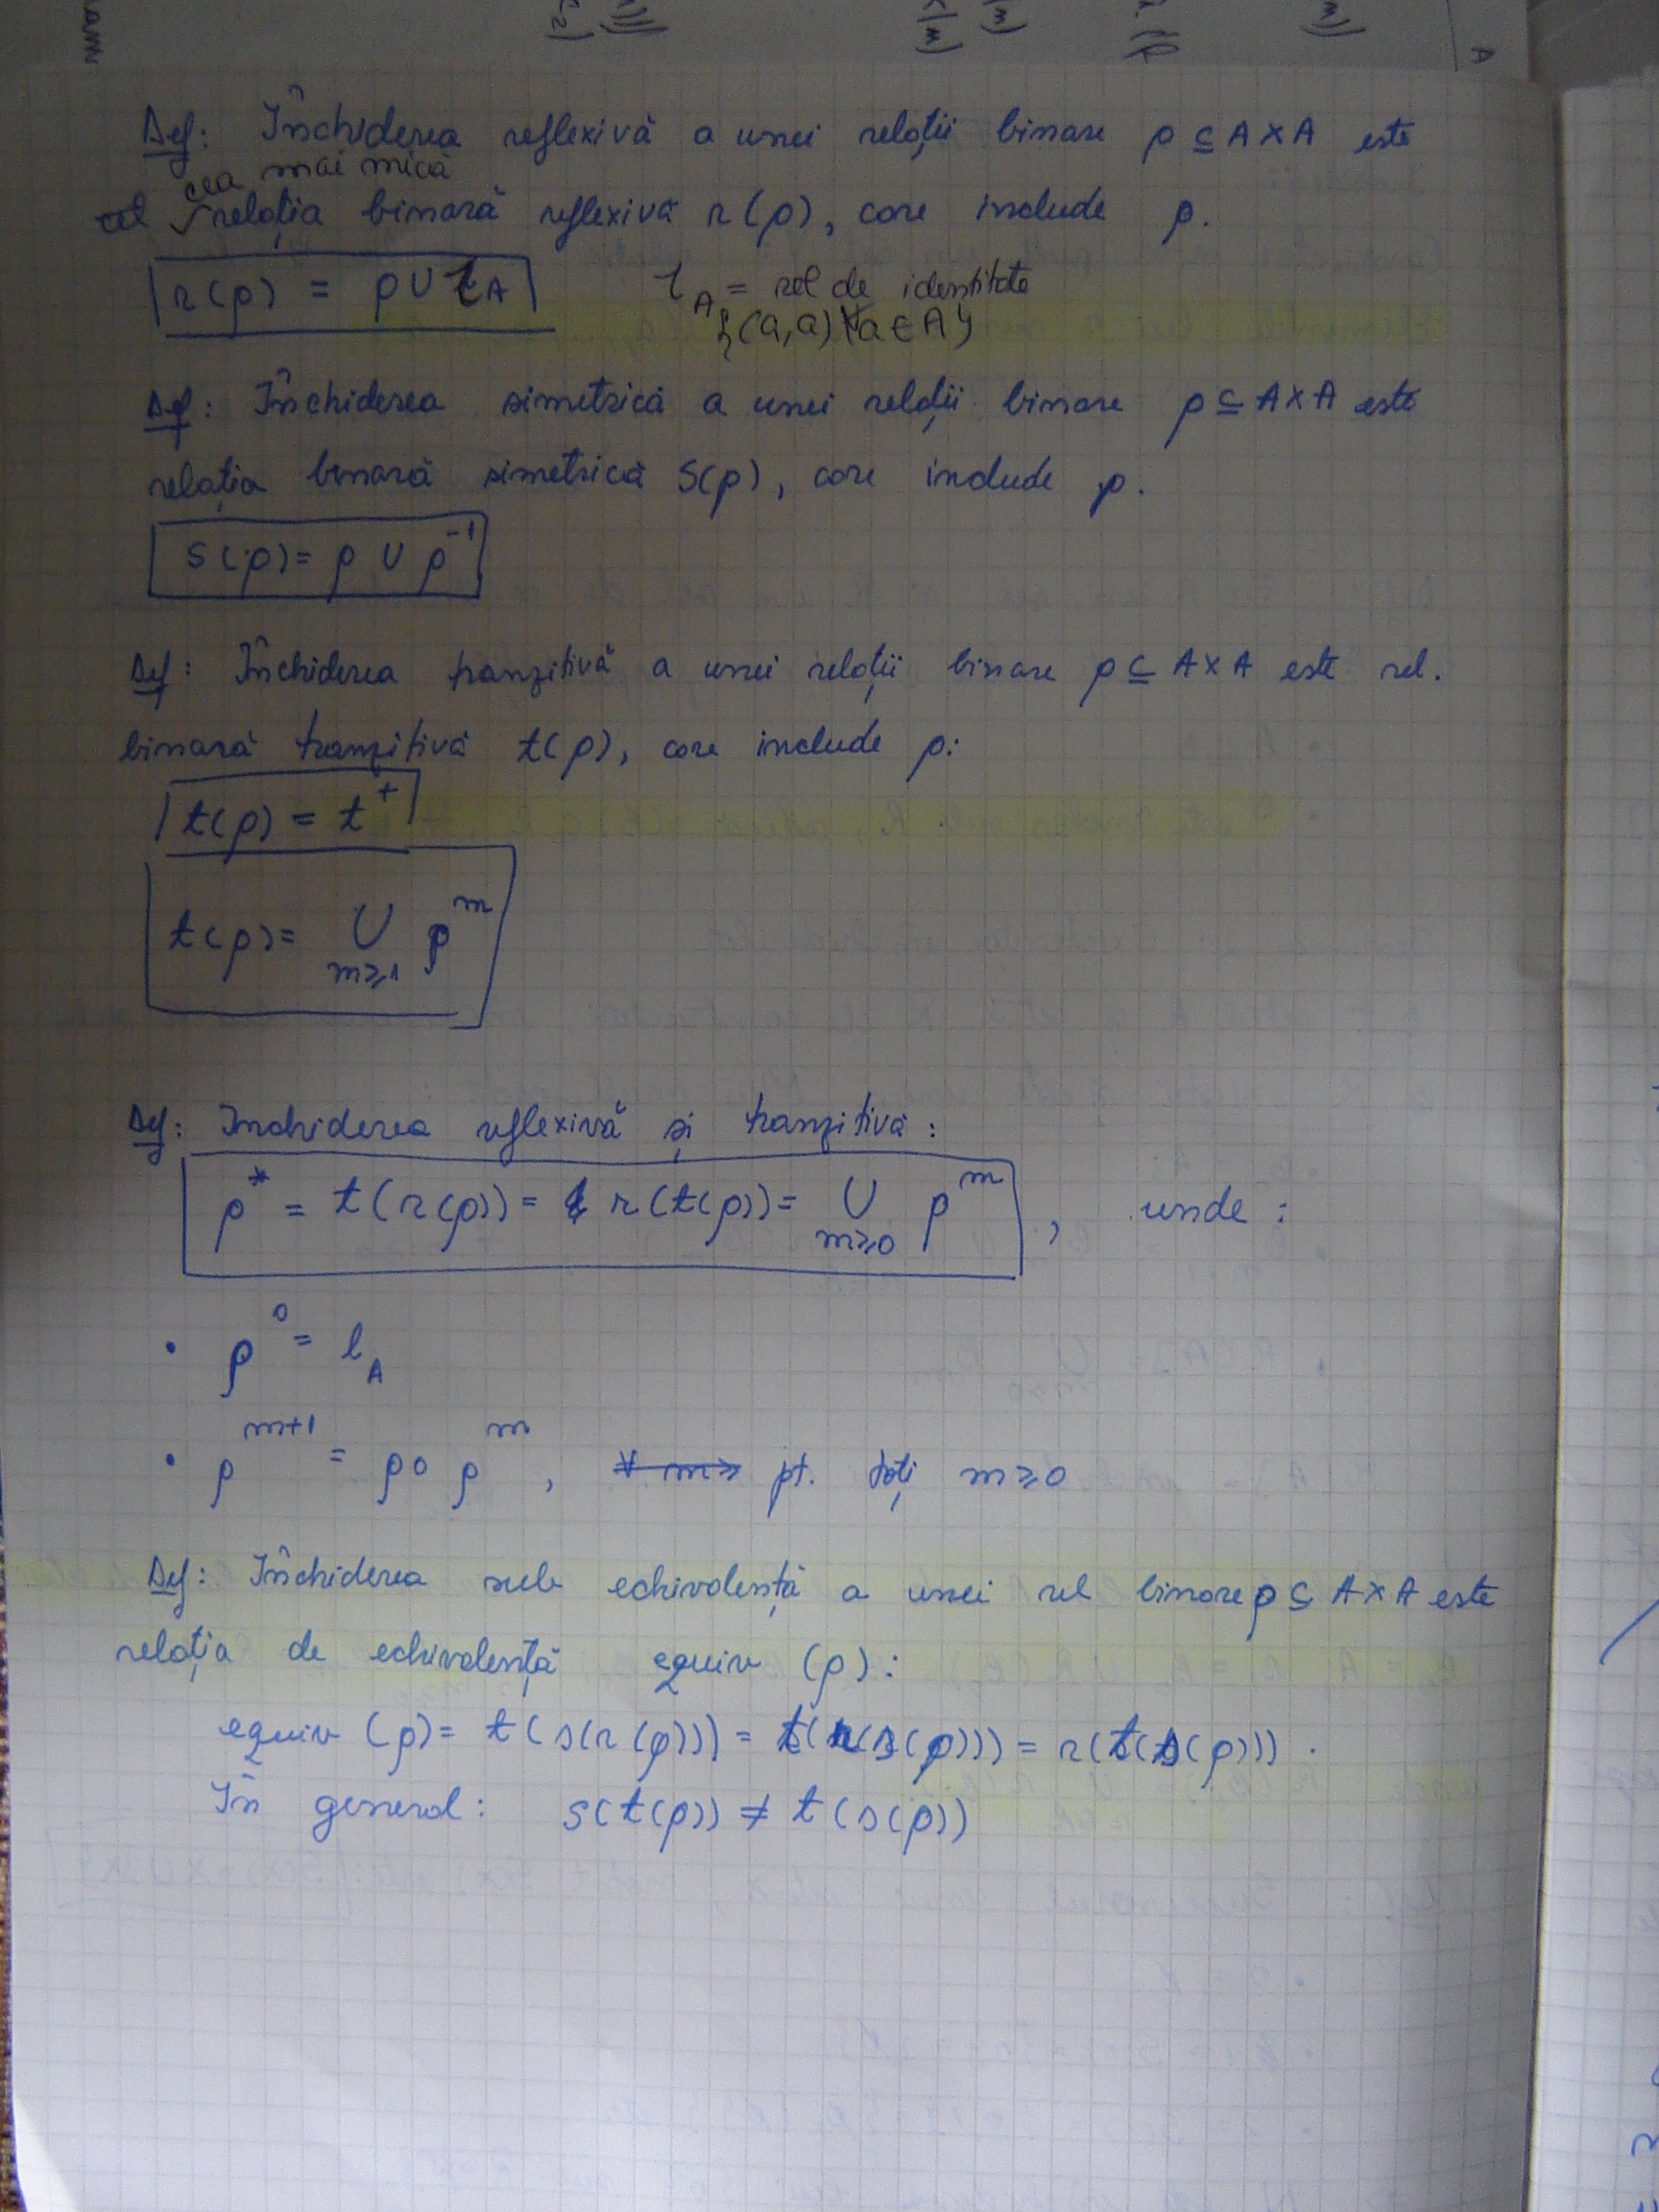 Def: Închiderea reflexivă a unei relații binare ρ ⊆ A×A este
cea mai mică
relația binară reflexivă r(ρ), care include ρ.
r(ρ) = ρ ∪ ιA
ιA = rel de identitate
{(a,a) | ∀a ∈ A}
Def: Închiderea simetrică a unei relații binare ρ ⊆ A×A este
relația binară simetrică S(ρ), care include ρ.
S(ρ) = ρ ∪ ρ⁻¹
Def: Închiderea tranzitivă a unei relații binare ρ ⊆ A×A este rel.
binară tranzitivă t(ρ), care include ρ:
t(ρ) = t⁺
t(ρ) = ∪ ρᵐ
m≥1
Def: Inchiderea reflexivă și tranzitivă:
ρ* = t(r(ρ)) = r(t(ρ)) = ∪ ρᵐ , unde:
m≥0
• ρ⁰ = ιA
• ρᵐ⁺¹ = ρ∘ρᵐ, ∀ m≥ pt. toți m≥0
Def: Închiderea sub echivalență a unei rel binare ρ ⊆ A×A este
relația de echivalență equiv (ρ):
equiv (ρ) = t(s(r(ρ))) = t(r(s(ρ))) = r(t(s(ρ))).
În general: S(t(ρ)) ≠ t(s(ρ))